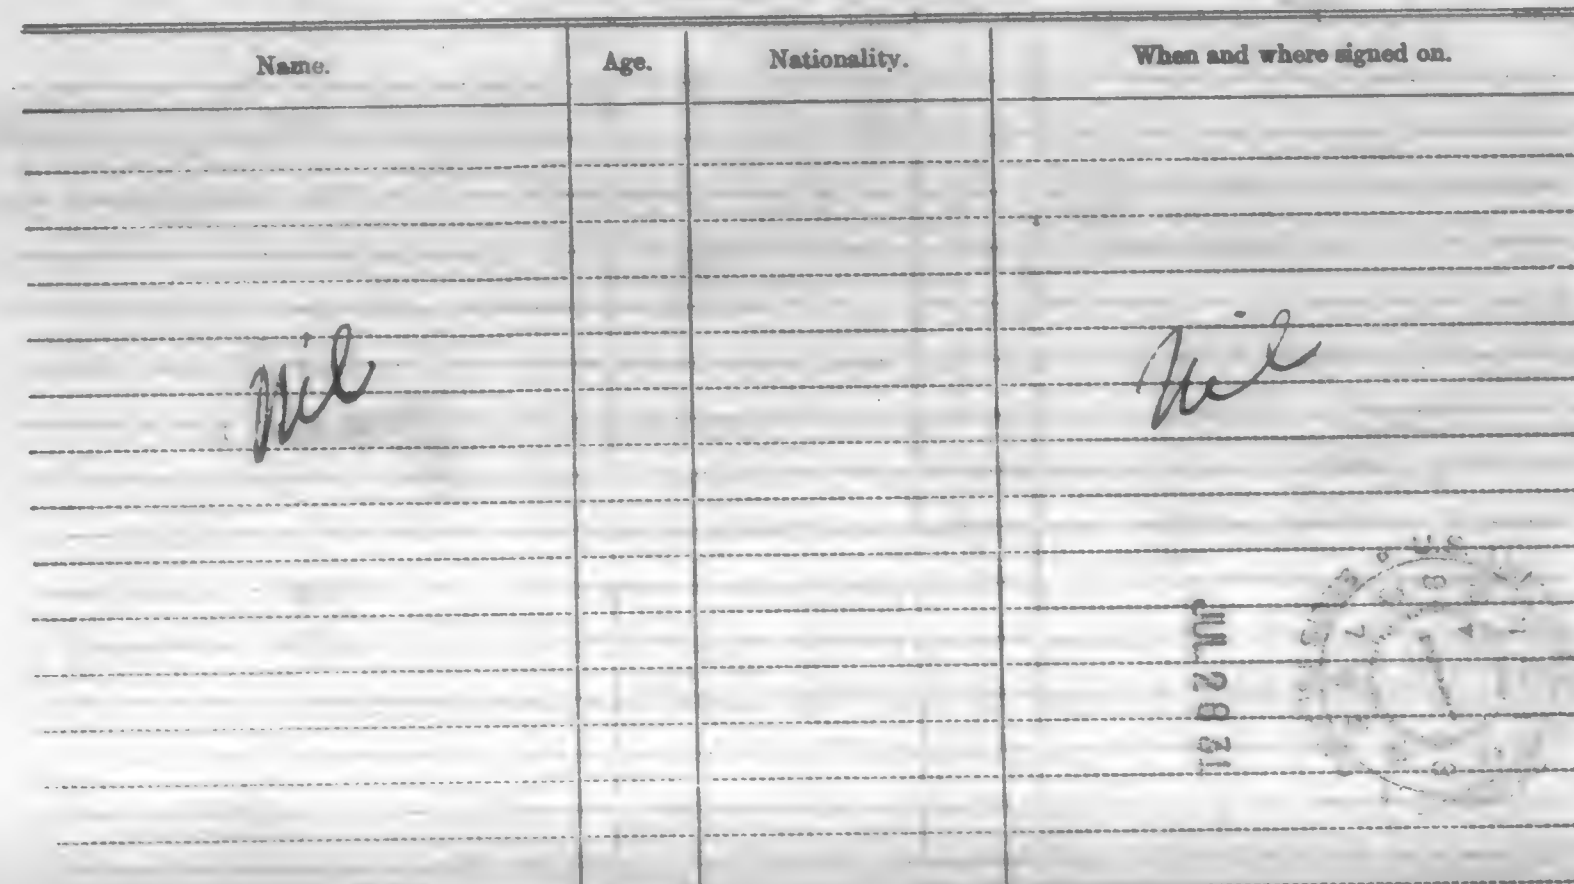 Name. Age. Nationality. When and where signed on.
Nil Nil
JUL 28 31